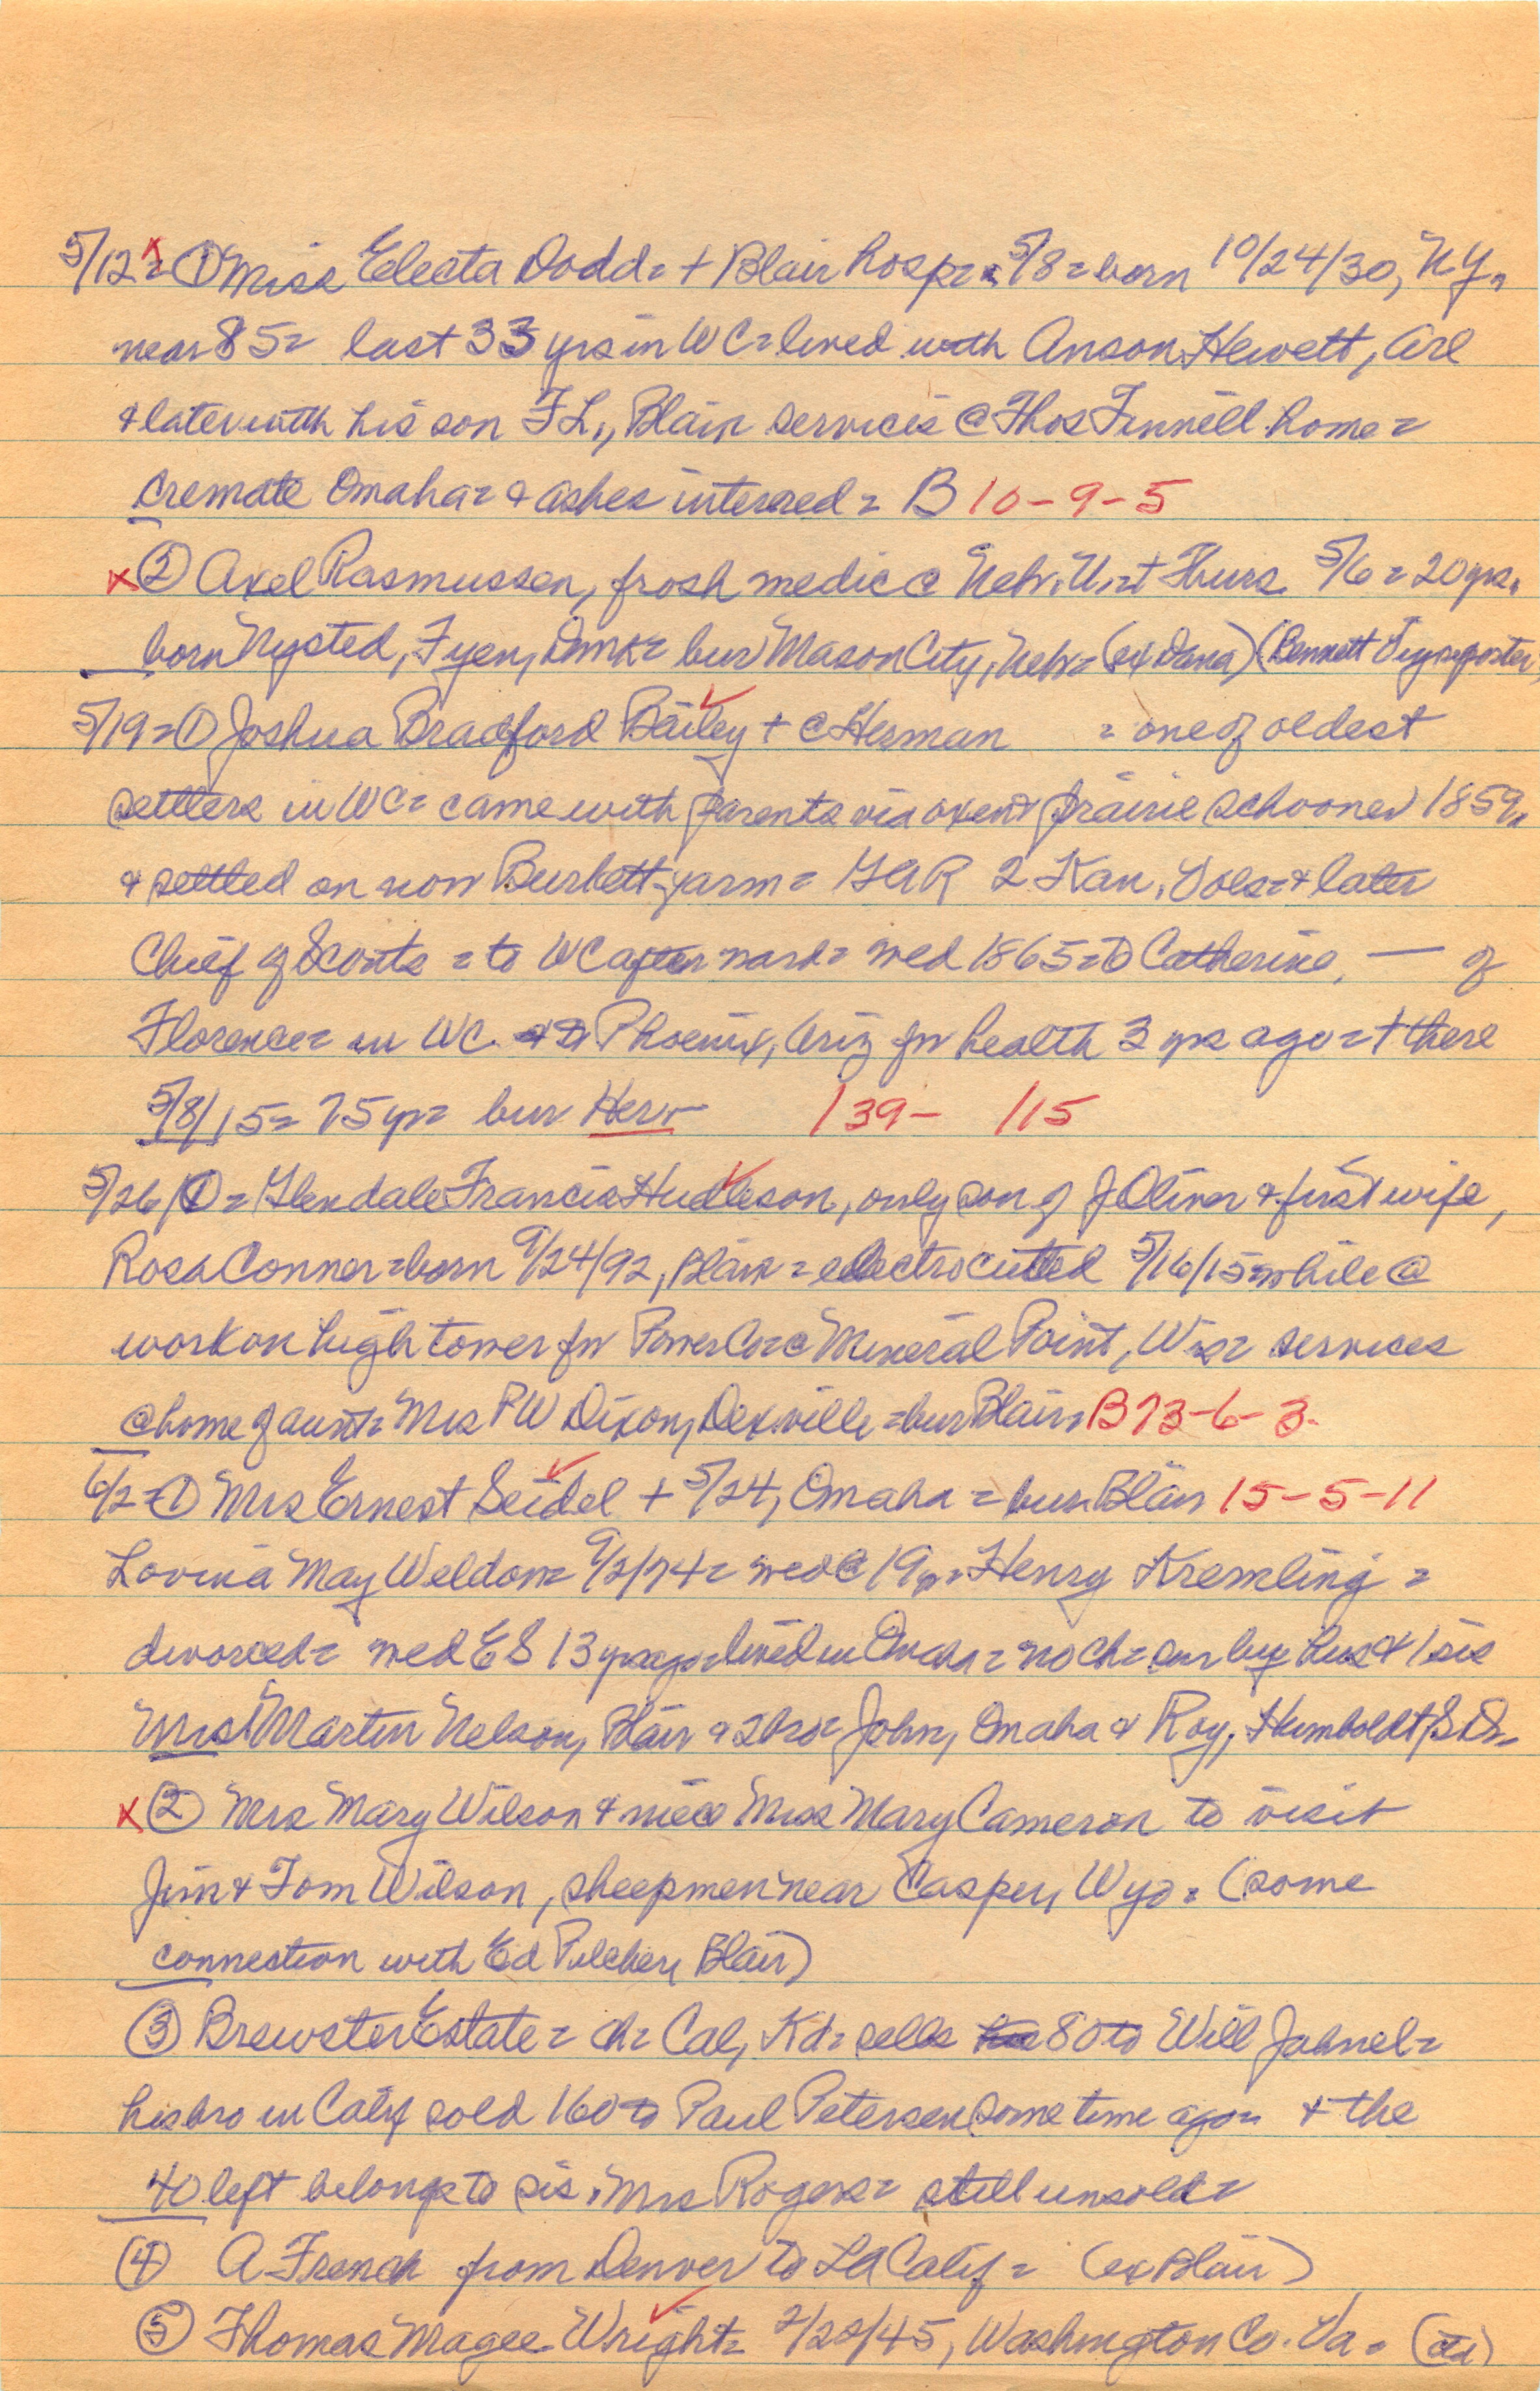 5/12 = ① Miss Electa Dodd = + Blair Hosp = 5/8 = born 10/24/30, NY,
near 85 = last 33 yrs in WC = lived with Anson Hewett, Arl
& later with his son F L, Blair services @ Thos Finnell home =
cremate Omaha = & ashes interred = B 10-9-5
x ② Axel Rasmussen, frosh medic @ Nebr. U. = + Thurs 5/6 = 20 yrs.
born Nysted, Fyen, Dmk = bur Mason City, Nebr = (ex Dana) (Bennett
5/19 = ① Joshua Bradford Bailey + @ Herman = one of oldest
settlers in WC = came with parents via oxen & prairie schooner 1859,
& settled on now Burkett farm = GAR 2 Kan. Vols = & later
Chief of Scouts = to WC afterward = wed 1865 = Catherine, — of
Florence = in WC. & to Phoenix, Ariz for health 3 yrs ago = + there
5/8/15 = 75 yr = bur Her 139 - 115
5/26 ① = Glendale Francis Hudleson, only son of J Oliver & first wife,
Rosa Conner = born 9/24/92, Blair = electrocuted 5/16/15 = while @
work on high tower for Power Co = @ Mineral Point, Wis = services
@ home of aunt = Mrs P W Dixon, Dexville = bur Blair = B 73-6-3.
6/2 = ① Mrs Ernest Seidel + 5/24, Omaha = bur Blair 15-5-11
Lovina May Weldon = 9/2/74 = wed @ 19 yr = Henry Kremling =
divorced = wed E S 13 yrs ago = lived in Omaha = no ch = sur by hus & 1 sis
Mrs Martin Nelson, Blair & 2 bro = John, Omaha & Roy, Humboldt, S D.
x ② Mrs Mary Wilson & niece Miss Mary Cameron to visit
Jim & Tom Wilson, sheepmen near Casper, Wyo = (some
connection with Ed Pilcher, Blair)
③ Brewster Estate = ch = Cal, Kd = sells 80 to Will Jahnel =
his bro in Calif sold 160 to Paul Petersen some time ago = & the
40 left belongs to sis, Mrs Rogers = still unsold =
④ A French from Denver to LA Calif = (ex Blair)
⑤ Thomas Magee Wright = 2/20/45, Washington Co. Va = (ctd)